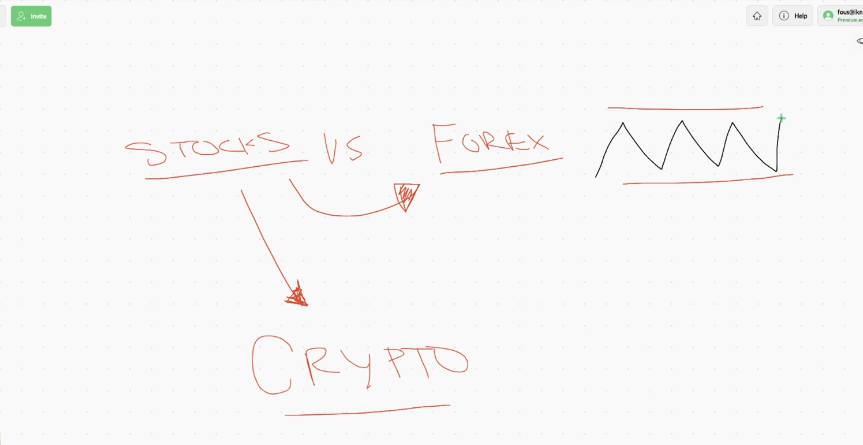 Invite
Help
fous@ikn
Premium ac
STOCKS VS FOREX
CRYPTO